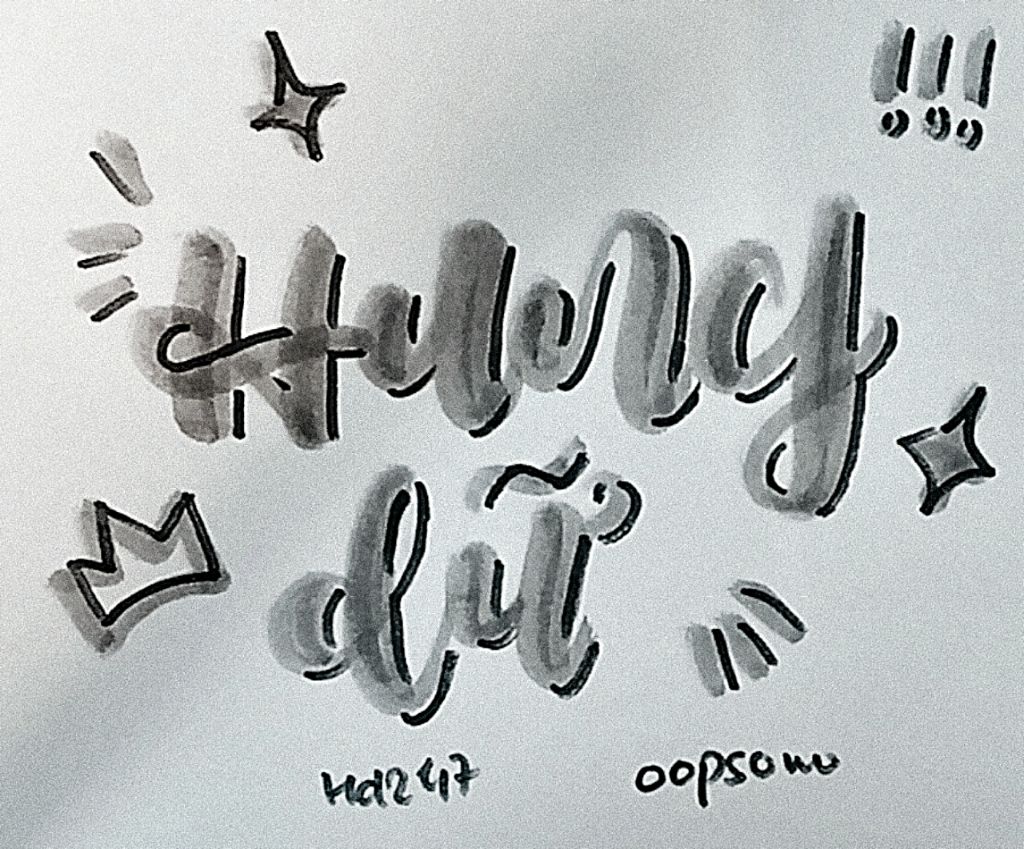 !!!
Hung
dữ
Hd247 oopsono